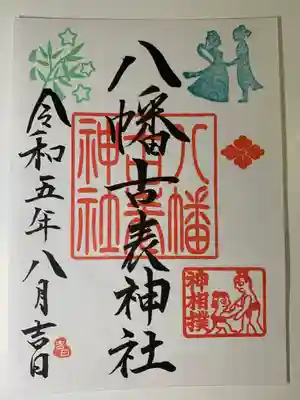 八幡古表神社
八幡
古表
神社
神相撲
令和五年八月吉日